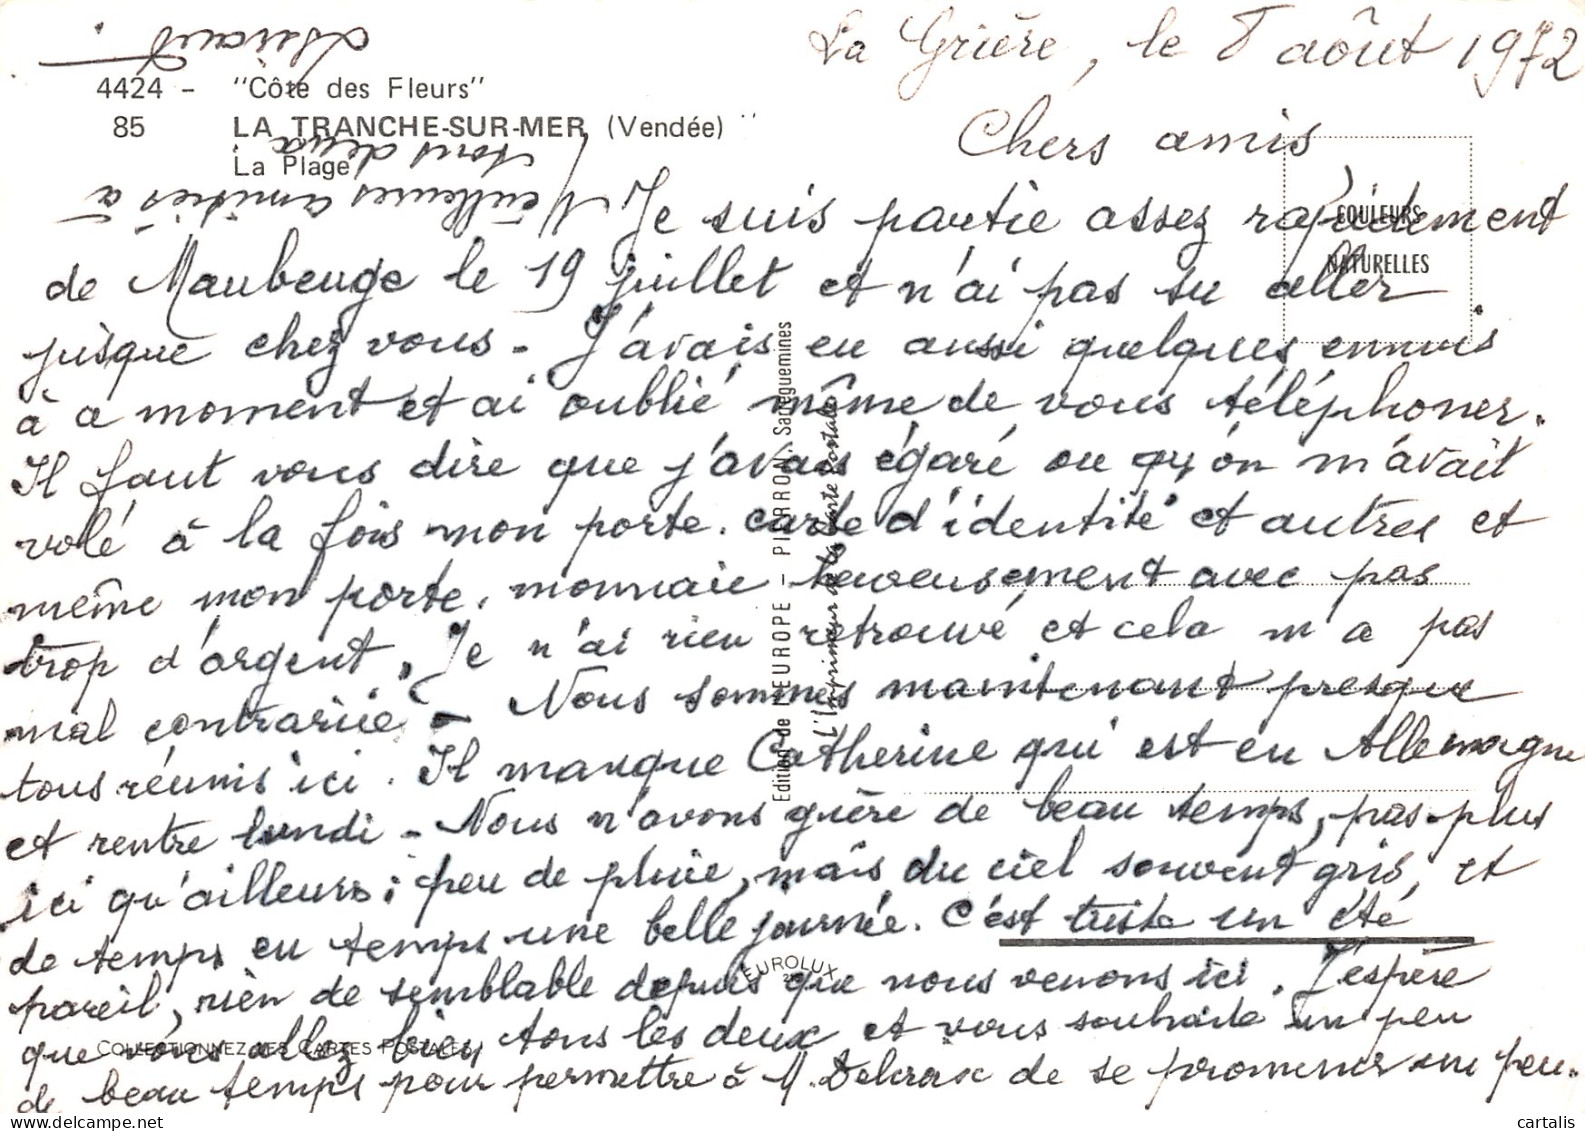 La Grière, le 8 août 1972
4424 - "Côte des Fleurs"
85 LA TRANCHE-SUR-MER (Vendée)
La Plage
Chers amis
COULEURS
NATURELLES
Je suis partie assez rapidement
de Maubeuge le 19 juillet et n'ai pas su aller
jusque chez vous - J'avais eu aussi quelques ennuis
à a moment et ai oublié même de vous téléphoner.
Il faut vous dire que j'avais égaré ou qu'on m'avait
volé à la fois mon porte-carte d'identité et autres et
même mon porte-monnaie heureusement avec pas
trop d'argent. Je n'ai rien retrouvé et cela m'a pas
mal contrariée - Nous sommes maintenant presque
tous réunis ici. Il manque Catherine qui est en Allemagne
et rentre lundi - Nous n'avons guère de beau temps, pas plus
ici qu'ailleurs; peu de pluie, mais du ciel souvent gris, et
de temps en temps une belle journée. C'est triste un été
pareil, rien de semblable depuis que nous venons ici. J'espère
que vous allez bien tous les deux et vous souhaite un peu
de beau temps pour permettre à M. Delcroix de se promener un peu.
Meilleures amitiés à
tous deux
Edition de l'EUROPE - PIERRON. Sarreguemines
L'Imprimeur de la Carte Postale
EUROLUX
COLLECTIONNEZ LES CARTES POSTALES
cartalis